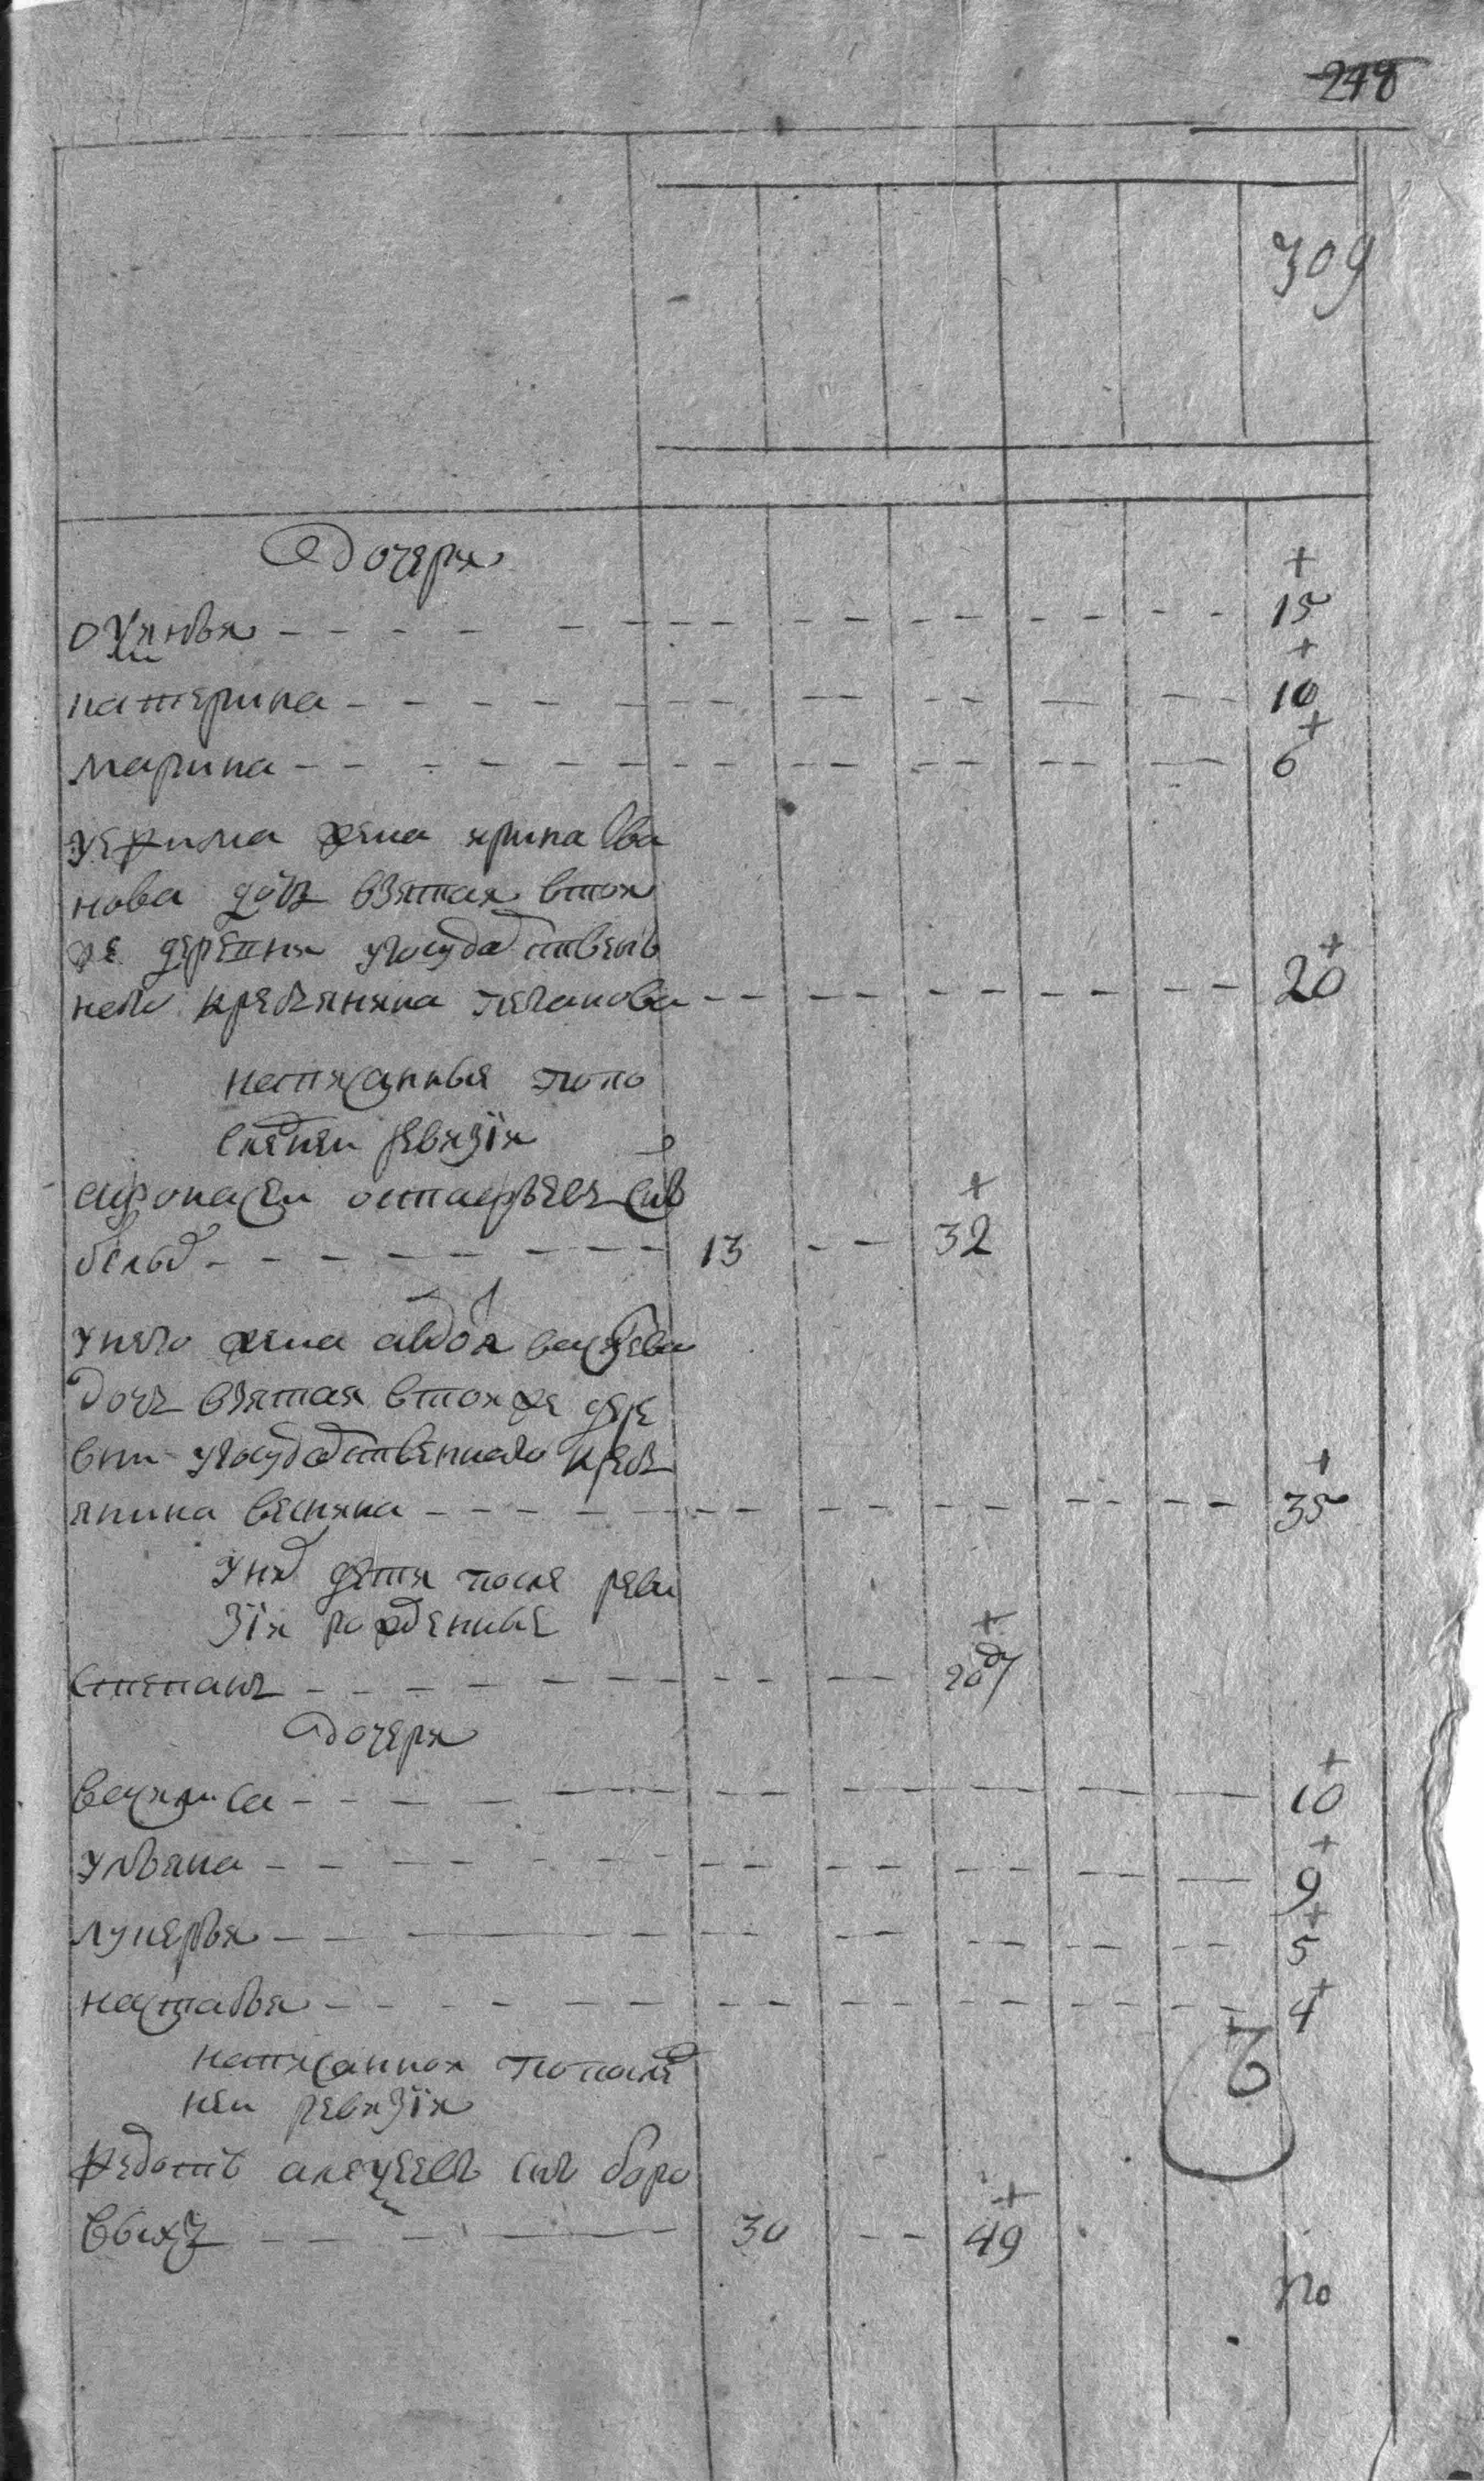 248
309
Дочери
15
катерина 10
марина 6
жена ирина Ива
нова дочь взятая втои
же деревни угосударствень
наго крестьянина 20
написанныя попо
следнеи ревизїи
афонасеи остафьевъ сынъ
13 32
унего жена авдотя васильева
дочь взятая втоиже дере
вни угосударственнаго кресть
янина 35
унихъ дети после реви
зїи рожденные
степанъ 20
дочери
василиса 10
ульяна 9
лукерья 5
настасья 4
написанной попослед
неи ревизїи
Федотъ алексеевъ сынъ боро
выхъ 30 49
По